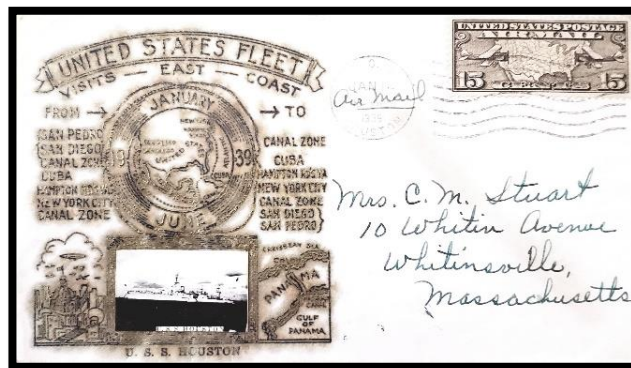 UNITED STATES FLEET
VISITS — EAST — COAST
FROM → → TO
JANUARY
19 39
JUNE
SAN PEDRO
SAN DIEGO
CANAL ZONE
CUBA
HAMPTON ROADS
NEW YORK CITY
CANAL ZONE
CANAL ZONE
CUBA
HAMPTON ROADS
NEW YORK CITY
CANAL ZONE
SAN DIEGO
SAN PEDRO
UNITED
CARIBBEAN SEA
PANAMA
GULF
OF
PANAMA
U.S.S. HOUSTON
U. S. S. HOUSTON
JAN
Air Mail
HOUSTON
UNITED STATES POSTAGE
AIR MAIL
15 CENTS 15
Mrs. C. M. Stuart
10 Whitin Avenue
Whitinsville,
Massachusetts